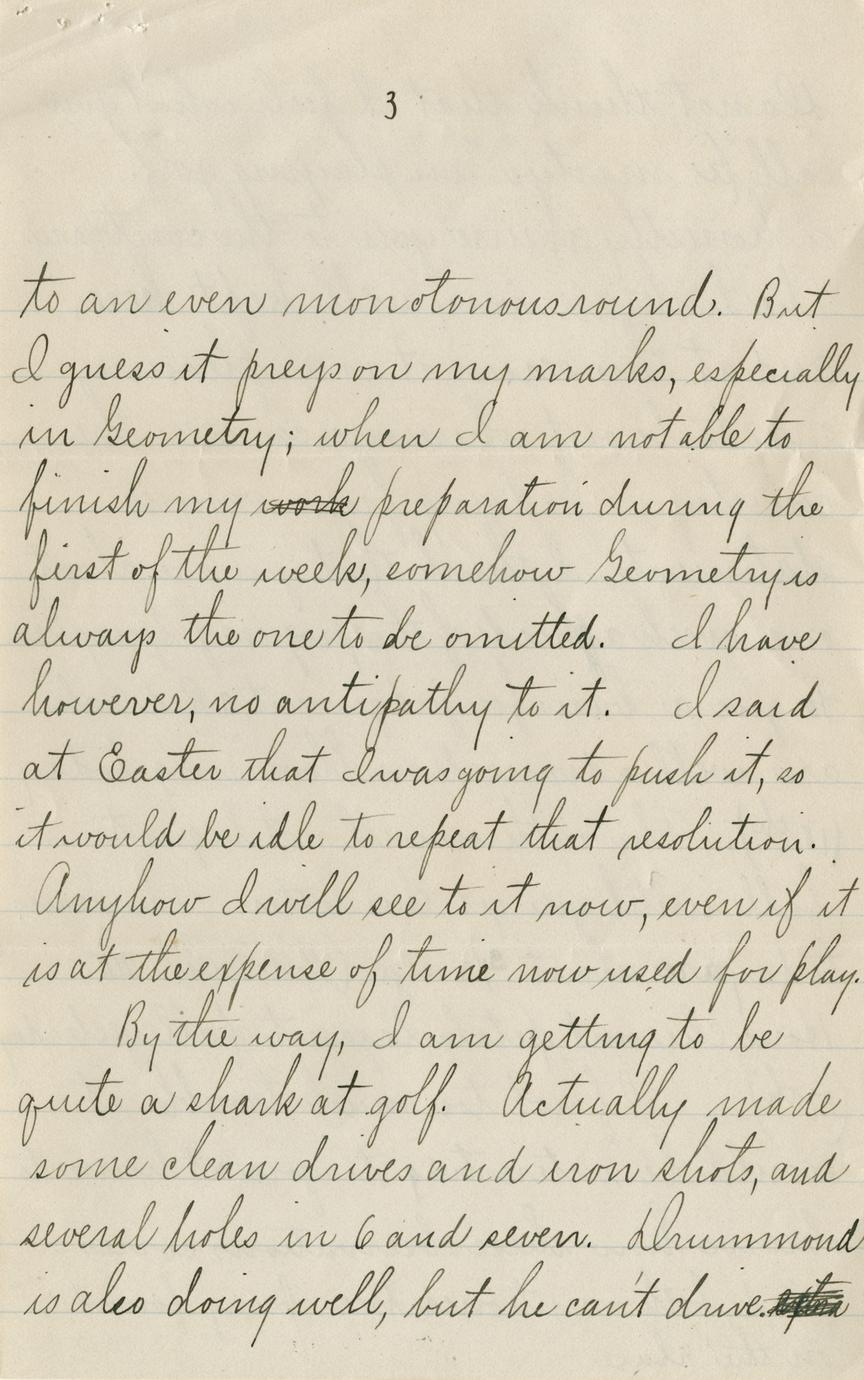 3
to an even monotonous round. But
I guess it preys on my marks, especially
in Geometry; when I am not able to
finish my work preparation during the
first of the week, somehow Geometry is
always the one to be omitted. I have
however, no antipathy to it. I said
at Easter that I was going to push it, so
it would be idle to repeat that resolution.
Anyhow I will see to it now, even if it
is at the expense of time now used for play.
By the way, I am getting to be
quite a shark at golf. Actually made
some clean drives and iron shots, and
several holes in 6 and seven. Drummond
is also doing well, but he can't drive.